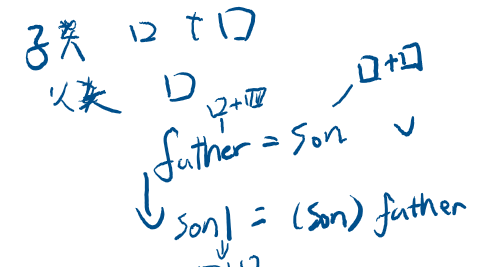 子类 口 + 口
父类 口
口+口
口+四
father = son
son1 = (son) father